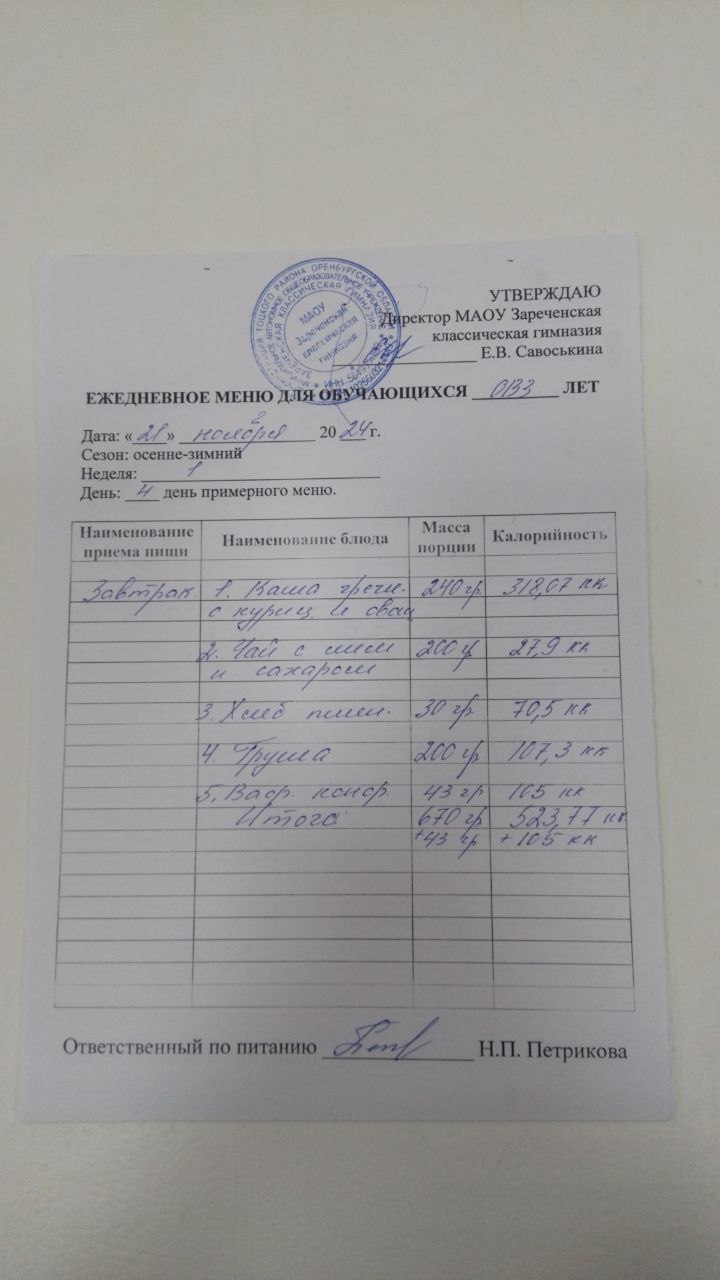 МАОУ
Зареченская
классическая
гимназия
УТВЕРЖДАЮ
Директор МАОУ Зареченская
классическая гимназия
Е.В. Савоськина
ЕЖЕДНЕВНОЕ МЕНЮ ДЛЯ ОБУЧАЮЩИХСЯ ОВЗ ЛЕТ
Дата: «21» ноября 2024 г.
Сезон: осенне-зимний
Неделя: 1
День: 4 день примерного меню.
Наименование приема пищи Наименование блюда Масса порции Калорийность
Завтрак 1. Каша гречн. 240 гр. 318,07 кк
с куриц. и овощ
2. Чай с лим 200 гр 27,9 кк
и сахаром
3. Хлеб пшен. 30 гр 70,5 кк
4. Груша 200 гр 107,3 кк
5. Ваф. конф. 43 гр 105 кк
Итого: 670 гр 523,77 кк
+43 гр +105 кк
Ответственный по питанию Н.П. Петрикова